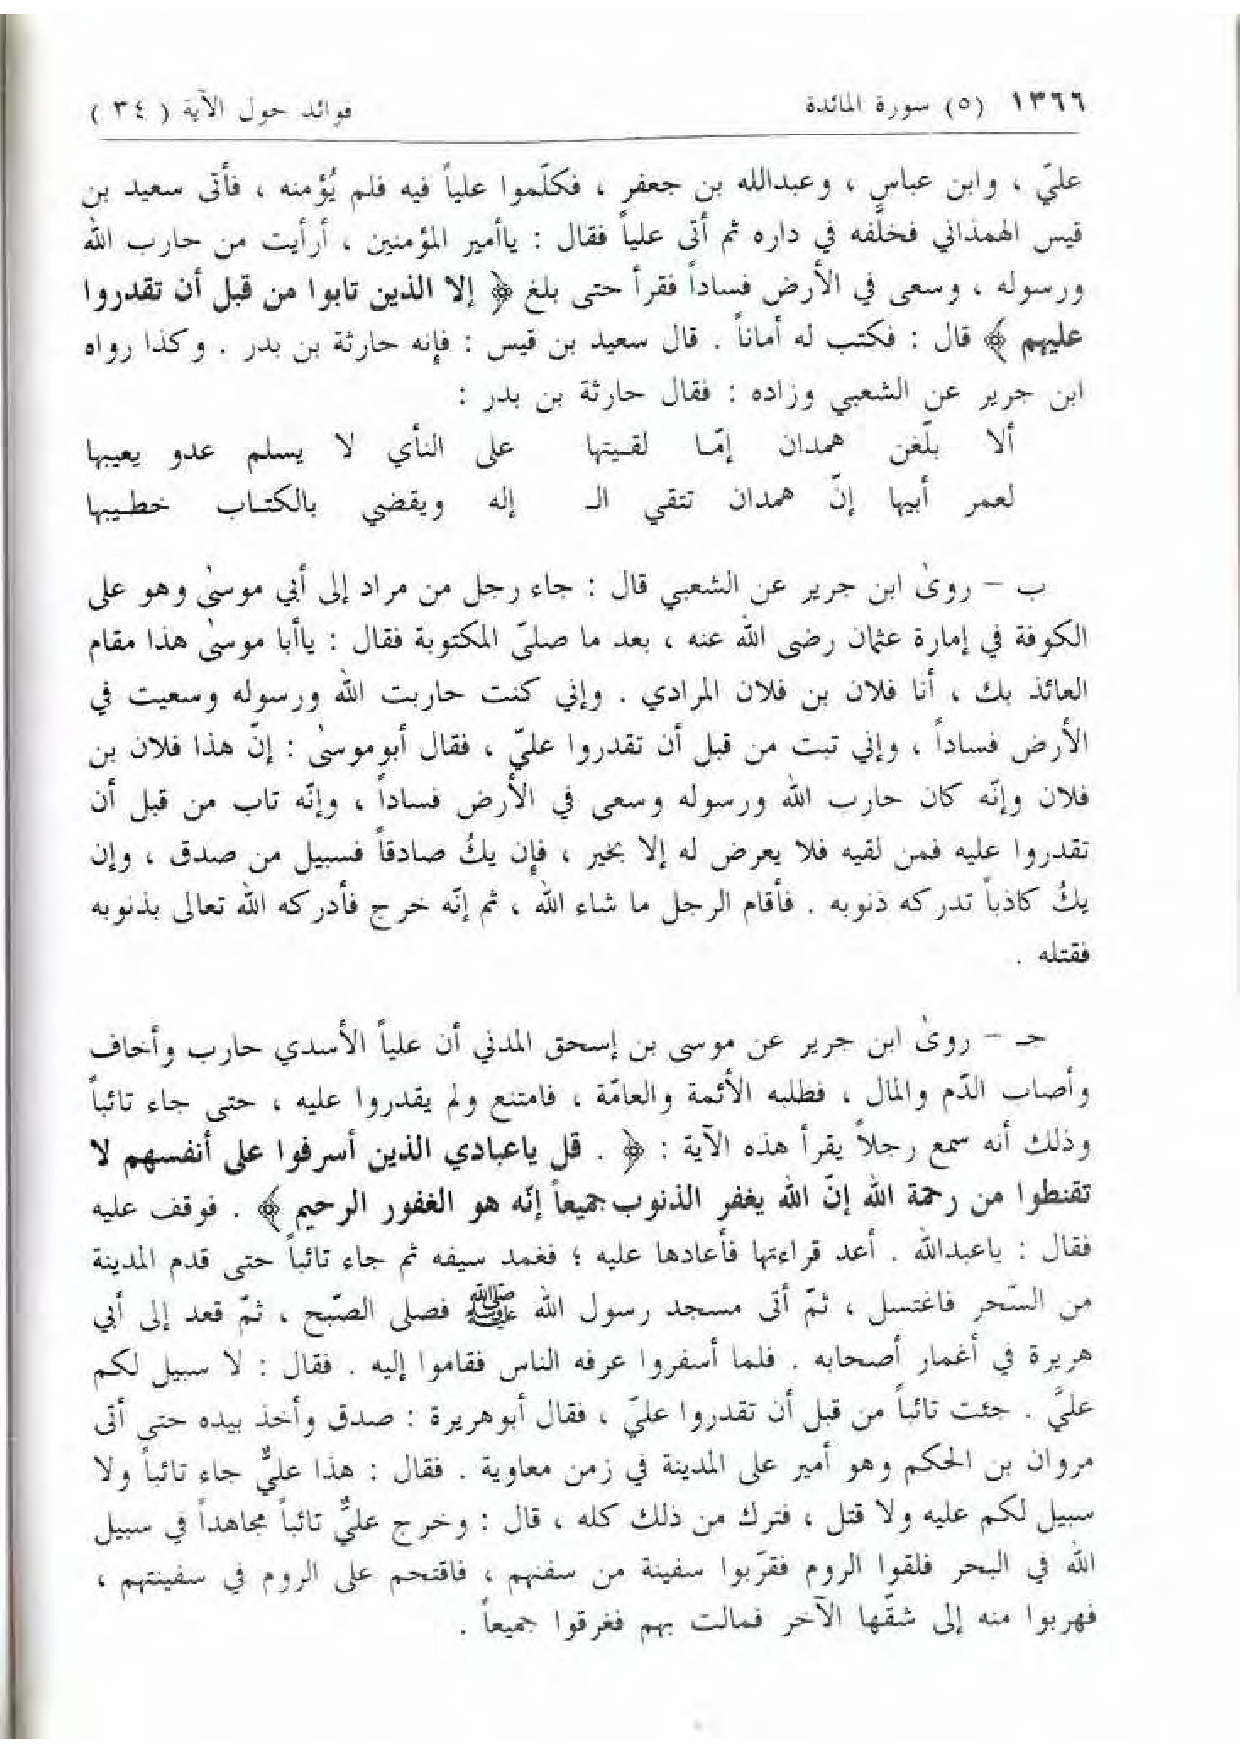 ١٣٦٦ (٥) سورة المائدة فوائد حول الآية (٣٤)
عليّ ، وابن عباس ، وعبدالله بن جعفر ، فكلّموا علياً فيه فلم يُؤمنه ، فأتى سعيد بن
قيس الهمذاني فخلَّفه في داره ثم أتى علياً فقال : ياأمير المؤمنين ، أرأيت من حارب الله
ورسوله ، وسعى في الأرض فساداً فقرأ حتى بلغ ﴿ إلا الذين تابوا من قبل أن تقدروا
عليهم ﴾ قال : فكتب له أماناً . قال سعيد بن قيس : فإنه حارثة بن بدر . وكذا رواه
ابن جرير عن الشعبي وزاده : فقال حارثة بن بدر :
ألا بلّغن همدان إمّا لقيتها على النأي لا يسلم عدو يعيبها
لعمر أبيها إنّ همدان تتقي الـ إله ويقضي بالكتاب خطيبها
ب – روىٰ ابن جرير عن الشعبي قال : جاء رجل من مراد إلى أبي موسىٰ وهو على
الكوفة في إمارة عثمان رضى الله عنه ، بعد ما صلىّ المكتوبة فقال : ياأبا موسىٰ هذا مقام
العائذ بك ، أنا فلان بن فلان المرادي . وإني كنت حاربت الله ورسوله وسعيت في
الأرض فساداً ، وإني تبت من قبل أن تقدروا عليّ ، فقال أبوموسىٰ : إنّ هذا فلان بن
فلان وإنّه كان حارب الله ورسوله وسعى في الأرض فساداً ، وإنّه تاب من قبل أن
تقدروا عليه فمن لقيه فلا يعرض له إلا بخير ، فإن يكُ صادقاً فسبيل من صدق ، وإن
يكُ كاذباً تدركه ذنوبه . فأقام الرجل ما شاء الله ، ثم إنّه خرج فأدركه الله تعالى بذنوبه
فقتله .
جـ – روىٰ ابن جرير عن موسى بن إسحق المدني أن علياً الأسدي حارب وأخاف
وأصاب الدّم والمال ، فطلبه الأئمة والعامّة ، فامتنع ولم يقدروا عليه ، حتى جاء تائباً
وذلك أنه سمع رجلاً يقرأ هذه الآية : ﴿ . قل ياعبادي الذين أسرفوا على أنفسهم لا
تقنطوا من رحمة الله إنّ الله يغفر الذنوب جميعاً إنّه هو الغفور الرحيم ﴾ . فوقف عليه
فقال : ياعبدالله . أعد قراءتها فأعادها عليه ؛ فغمد سيفه ثم جاء تائباً حتى قدم المدينة
من السّحر فاغتسل ، ثمّ أتى مسجد رسول الله ﷺ فصلى الصّبح ، ثمّ قعد إلى أبي
هريرة في أغمار أصحابه . فلما أسفروا عرفه الناس فقاموا إليه . فقال : لا سبيل لكم
عليَّ . جئت تائباً من قبل أن تقدروا عليّ ، فقال أبوهريرة : صدق وأخذ بيده حتى أتى
مروان بن الحكم وهو أمير على المدينة في زمن معاوية . فقال : هذا عليٌّ جاء تائباً ولا
سبيل لكم عليه ولا قتل ، فترك من ذلك كله ، قال : وخرج عليٌّ تائباً مجاهداً في سبيل
الله في البحر فلقوا الروم فقرّبوا سفينة من سفنهم ، فاقتحم على الروم في سفينتهم ،
فهربوا منه إلى شقّها الآخر فمالت بهم فغرقوا جميعاً .